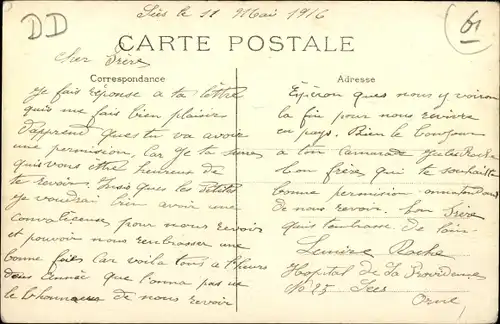 DD
Sées le 11 Mai 1916
61
CARTE POSTALE
cher Frère
Correspondance
Je fais réponse a ta lettre
quis me fais bien plaisir
d'apprend ques tu va avoir
une permision, Car Je tu seras
quis vous être heureux de
te revoir. Ausis ques les
Je voudrai bien avoir une
Convalicense pour nous revoir
et pouvoir nous renbrasser une
bonne fois car voila tous a l'heure
année que l'onna pas ue
le bhonneur de nous revoir
Adresse
Espéron ques nous y voiron
la fin pour nous revivre
en pays. Bien le bonjour
a ton Camarade Jules
ton frère qui te souhaite
bonne permision onnatendans
de nous revoir. ton Frère
quis tenbrasse. De loin
Roche
Hospital de La Providence
No 25 Sees
Orne